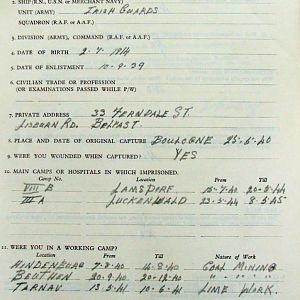 2. SHIP (R.N., U.S.N. or MERCHANT NAVY)
UNIT (ARMY) IRISH GUARDS
SQUADRON (R.A.F. or A.A.F.)
3. DIVISION (ARMY), COMMAND (R.A.F. or A.A.F.)
4. DATE OF BIRTH 2-7-1914
5. DATE OF ENLISTMENT 10-9-29
6. CIVILIAN TRADE OR PROFESSION
(OR EXAMINATIONS PASSED WHILE P/W)
7. PRIVATE ADDRESS 33 FERNDALE ST.
LISBURN RD. BELFAST.
8. PLACE AND DATE OF ORIGINAL CAPTURE BOULOGNE 25-5-40
9. WERE YOU WOUNDED WHEN CAPTURED? YES
10. MAIN CAMPS OR HOSPITALS IN WHICH IMPRISONED.
Camp No. Location From Till
VIII B LAMSDORF 15-7-40 20-5-44
III A LUCKENWALD 23-5-44 8.5.45
11. WERE YOU IN A WORKING CAMP?
Location From Till Nature of Work
HINDENBURG 7-8-40 16-8-40 COAL MINING
BEUTHEN 20-9-40 20-12-40 " "
TARNAU 13-5-41 10-6-41 LIME WORK.